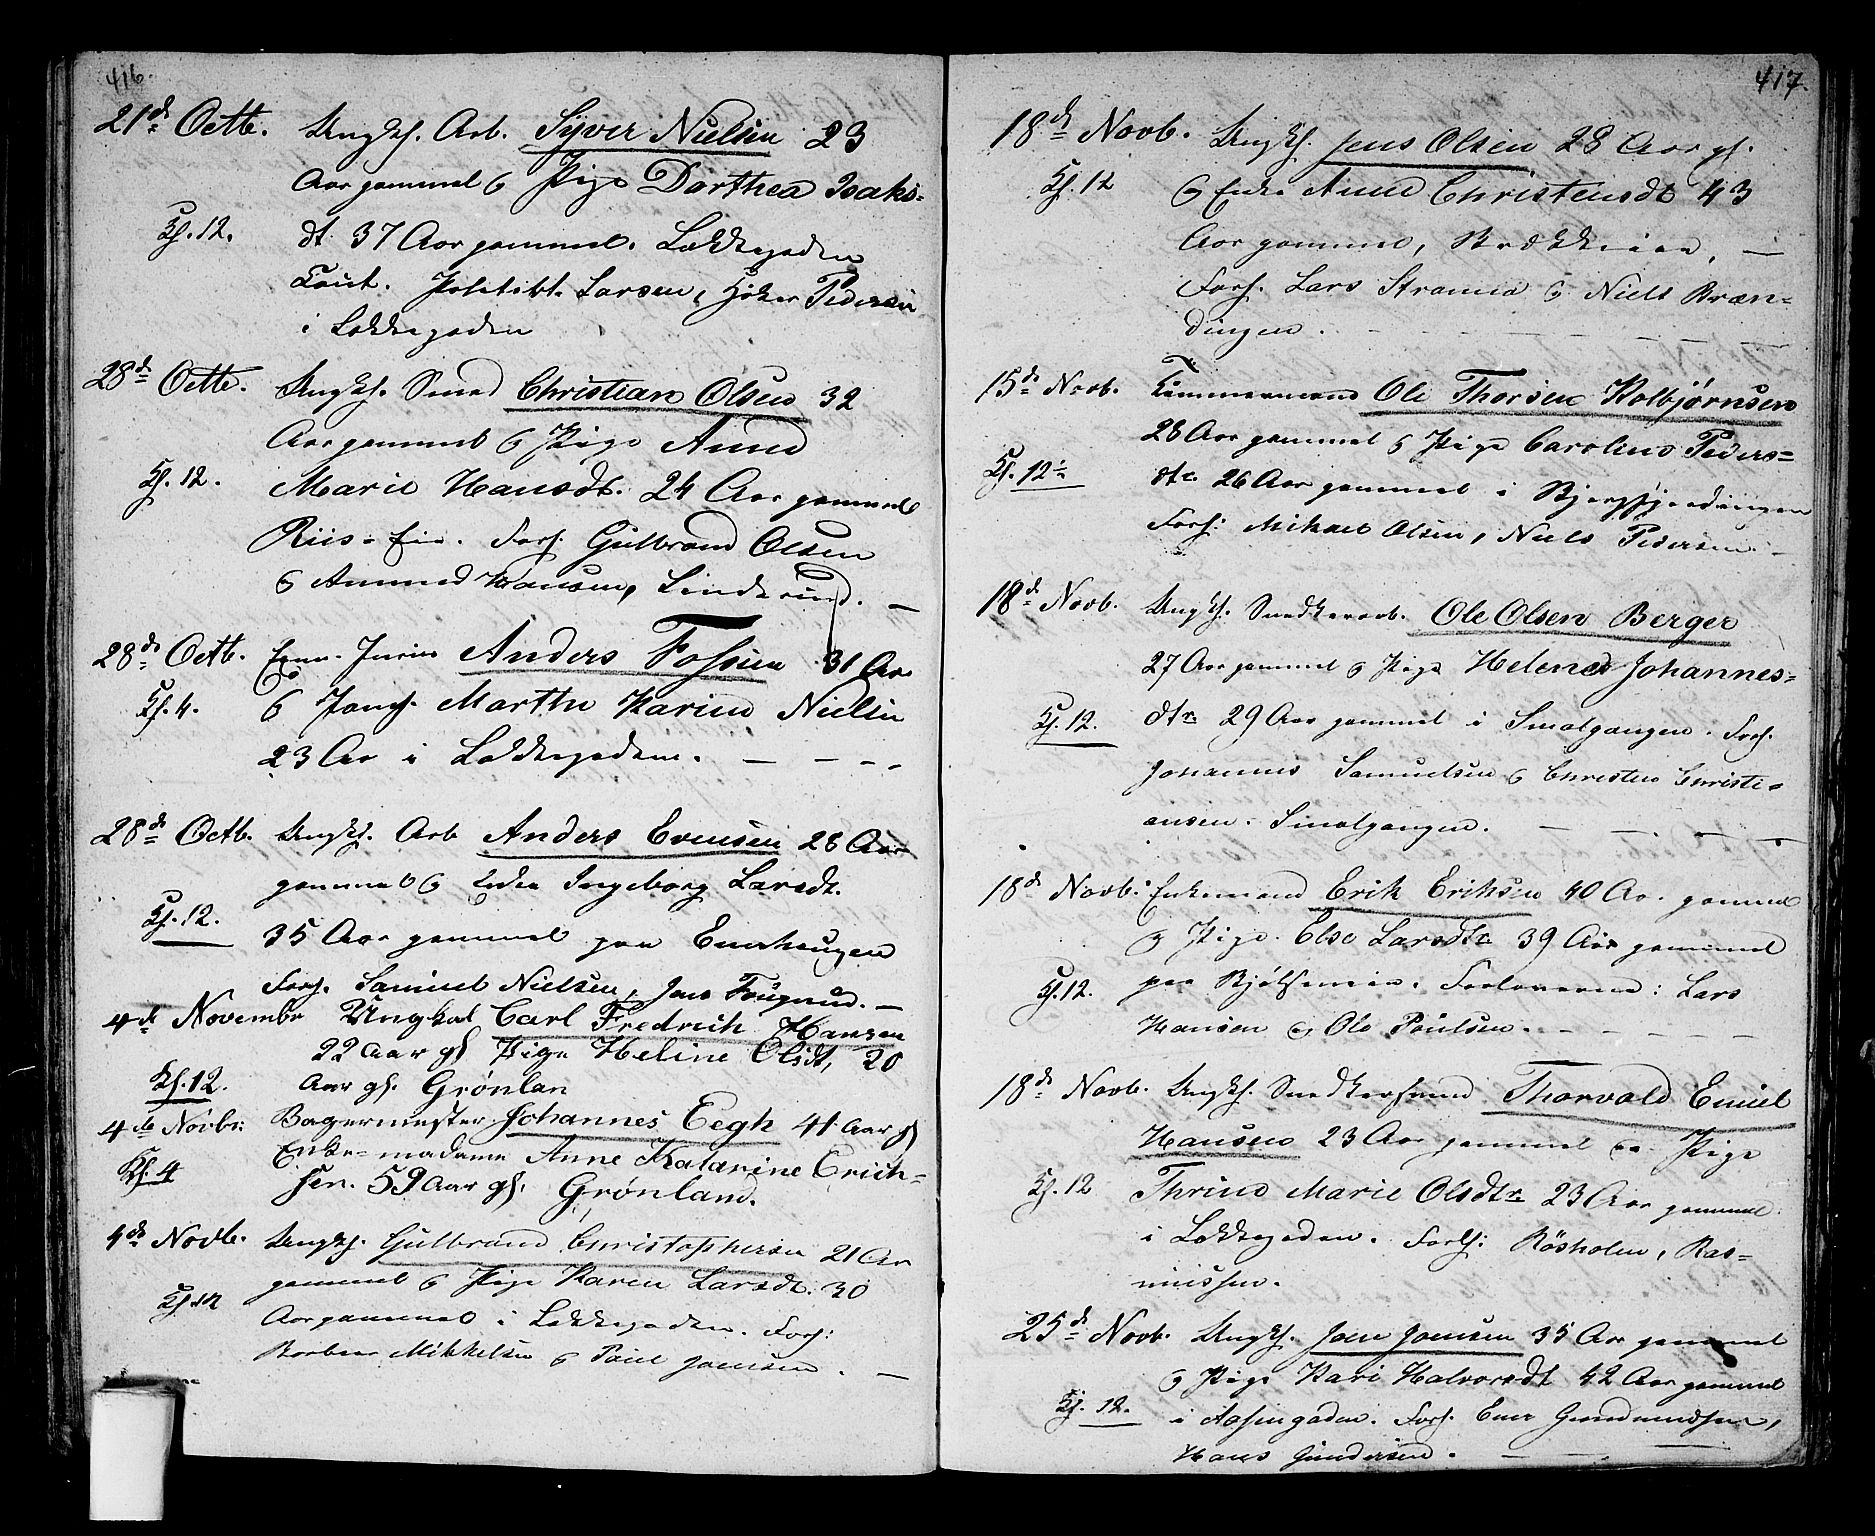 416.
21de Octb. Ungk. Arb. Syver Nielsen 23
Aar gammel & Pige Dorthea Isaks-
Kl. 12. dt 37 Aar gammel. Lakkegaden
Caut. Politibt. Larsen, Høker Pedersen
i Lakkegaden
28de Octb. Ungk. Smed Christian Olsen 32
Aar gammel & Pige Anne
Kl. 12. Marie Hansdt. 24 Aar gammel
Riis-Eie. Forl. Gulbrand Olsen
& Amund Hansen, Linderud. —
28de Octb. Exam. Juris Anders Fossen 31 Aar
Kl. 4. & Jomf. Marthe Karine Nielsen
23 Aar i Lakkegaden. — — — —
28de Octb. Ungk. Arb Anders Evensen 28 Aar
gammel & Enke Ingeborg Larsdt.
Kl. 12. 35 Aar gammel paa Enerhaugen
Forl. Samuel Nielsen, Jens Frugnud. —
4de Novembr Ungkal Carl Fredrich Hansen
22 Aar gl Pige Heline Olsdt, 20
Kl. 12. Aar gl. Grønlan
4de Novbr: Bagermester Johannes Eegh 41 Aar gl
Kl. 4 Enke-madame Anne Katarine Erich-
sen. 59 Aar gl. Grønland.
4de Novb. Ungk. Gulbrand Christophersen 21 Aar
gammel & Pige Karen Larsdt. 30
Kl. 12 Aar gammel i Lakkegaden. Forl:
Mikkelsen & Paul Jansen. —
417.
18de Novb. Ungk. Jens Olsen 28 Aar gl.
Kl. 12 & Enke Anne Christensdt 43
Aar gammel, —
Forl. Lars Strømen & Niels Bræn-
dingen. — — — — —
15de Novb. Tømmermand Ole Thorsen Kolbjørnsen
28 Aar gammel & Pige Caroline Peders-
Kl. 12½ dtr. 26 Aar gammel i Bjergfjerdingen
Forl: Mikael Olsen, Niels Pedersen —
18de Novb. Ungk. Snedkerarb. Ole Olsen Berger
27 Aar gammel & Pige Helene Johannes-
Kl. 12. dtr. 29 Aar gammel i Smalgangen. Forl.
Johannes Samuelsen & Christen Christi-
ansen. Smalgangen. — — — —
18de Novb. Enkemand Erik Eriksen 40 Aar gammel
& Pige. Else Larsdtr 39 Aar gammel
Kl. 12. paa Bjølseneie. Forloverne: Lars
Hansen og Ole Poulsen. — — — —
18de Novb. Ungk. Snedkersvend Thorvald Emiel
Hansen 23 Aar gammel og Pige
Kl. 12 Thrine Marie Olsdtr. 23 Aar gammel.
i Lakkegaden. Forl: Røsholm, Ras-
mussen.
25de Novb. Ungk. Jens Jansen 35 Aar gammel
& Pige Kari Halvorsdt 42 Aar gammel
Kl. 12. i Forl. Ener Gundmundsen,
Hans Gundersen. — — —